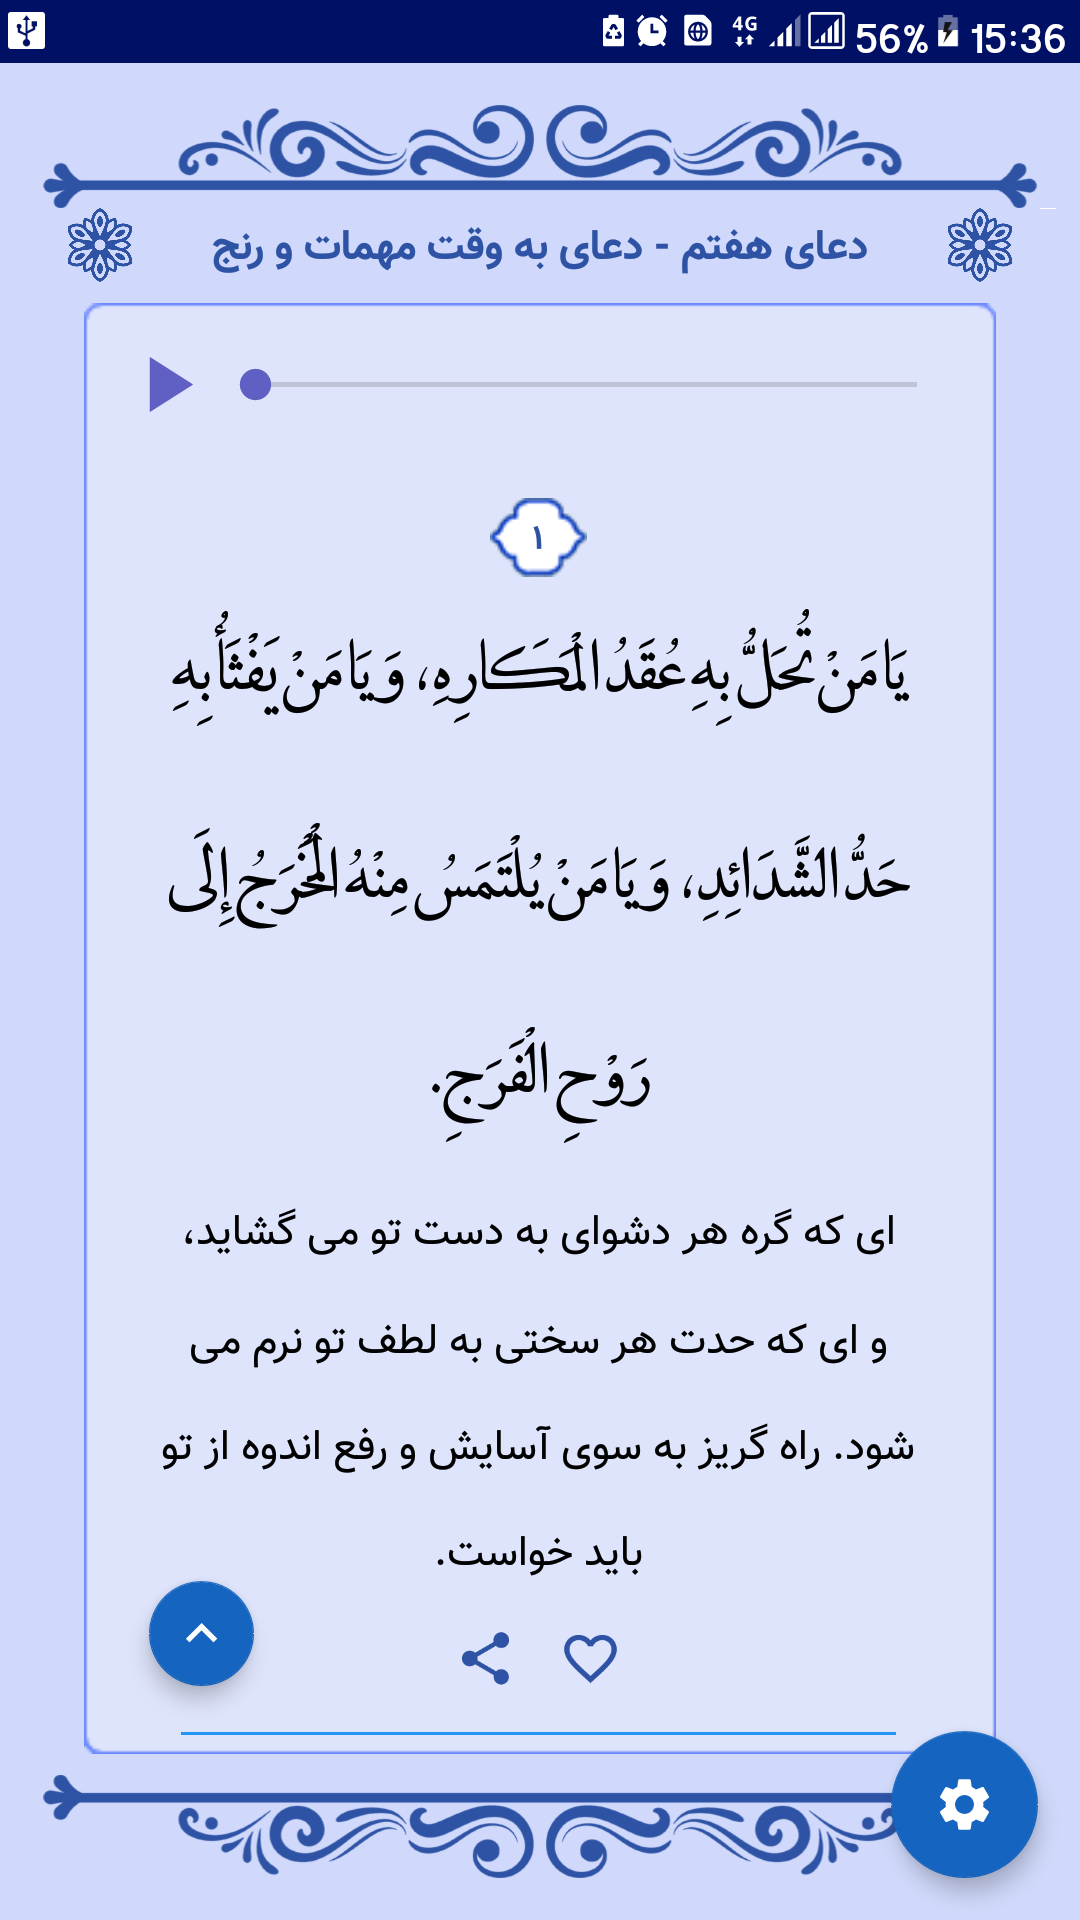 4G 56% 15:36
دعای هفتم - دعای به وقت مهمات و رنج
۱
يَا مَنْ تُحَلُّ بِهِ عُقَدُ الْمَكَارِهِ، وَ يَا مَنْ يَفْثَأُ بِهِ
حَدُّ الشَّدَائِدِ، وَ يَا مَنْ يُلْتَمَسُ مِنْهُ الْمَخْرَجُ إِلَى
رَوْحِ الْفَرَجِ.
ای که گره هر دشوای به دست تو می گشاید،
و ای که حدت هر سختی به لطف تو نرم می
شود. راه گریز به سوی آسایش و رفع اندوه از تو
باید خواست.